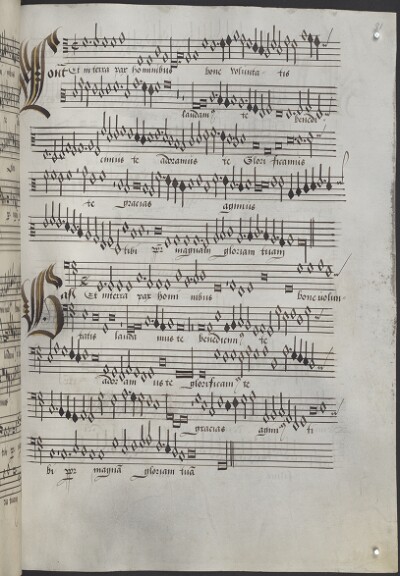 Cont Et in terra pax hominibus bone volunta tis
laudam⁹ te benedi
cimus te adoramus te Glori ficamus
te gracias agimus
tibi ꝓpt magnam gloriam tuam
Bass Et in terra pax homi nibus bone volun
tatis lauda mus te benedicim⁹ te
ador am us te glorificam⁹ te
gracias agim⁹ ti
bi magnā gloriam tuā